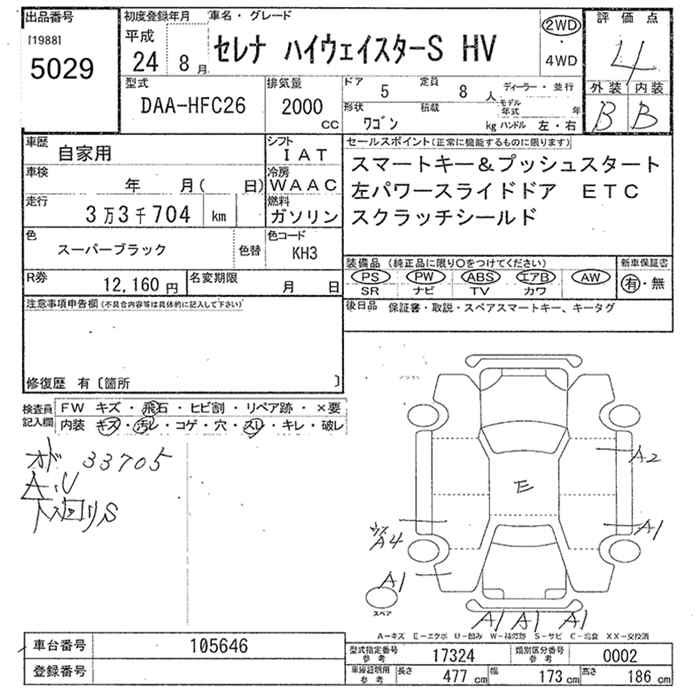 出品番号 初度登録年月 車名・グレード 2WD 評価点
[1988] 平成 セレナ ハイウェイスターS HV 4
5029 24 8月 4WD 外装 内装
型式 排気量 ドア 5 定員 8人 ディーラー・並行 B B
DAA-HFC26 2000cc 形状 ワゴン 積載 kg モデル年式 年 ハンドル 左・右
車歴 自家用 シフト IAT セールスポイント(正常に機能するものに限ります)
車検 年 月( 日) 冷房 WAAC スマートキー&プッシュスタート
走行 3万3千704 km 燃料 ガソリン 左パワースライドドア ETC
スクラッチシールド
色 スーパーブラック 色替 色コード KH3
装備品(純正品に限り○をつけてください) 新車保証書
R券 12,160円 名変期限 月 日 PS PW ABS エアB AW 有・無
SR ナビ TV カワ
注意事項申告欄(不具合内容等は具体的に記入して下さい) 後日品 保証書・取説・スペアスマートキー、キータグ
修復歴 有〔箇所 〕
検査員記入欄 FW キズ・飛石・ヒビ割・リペア跡・×要
内装 キズ・汚レ・コゲ・穴・スレ・キレ・破レ
オド 33705
A.U
下回りS
E
A2
A1
A4
A1
スペア
A1 A1 A1
A-キズ E-エクボ U-凹み W-補修跡 S-サビ C-腐食 XX-交換済
車台番号 105646 型式指定番号 参考 17324 類別区分番号 参考 0002
登録番号 車庫証明用 参考 長さ 477cm 幅 173cm 高さ 186cm